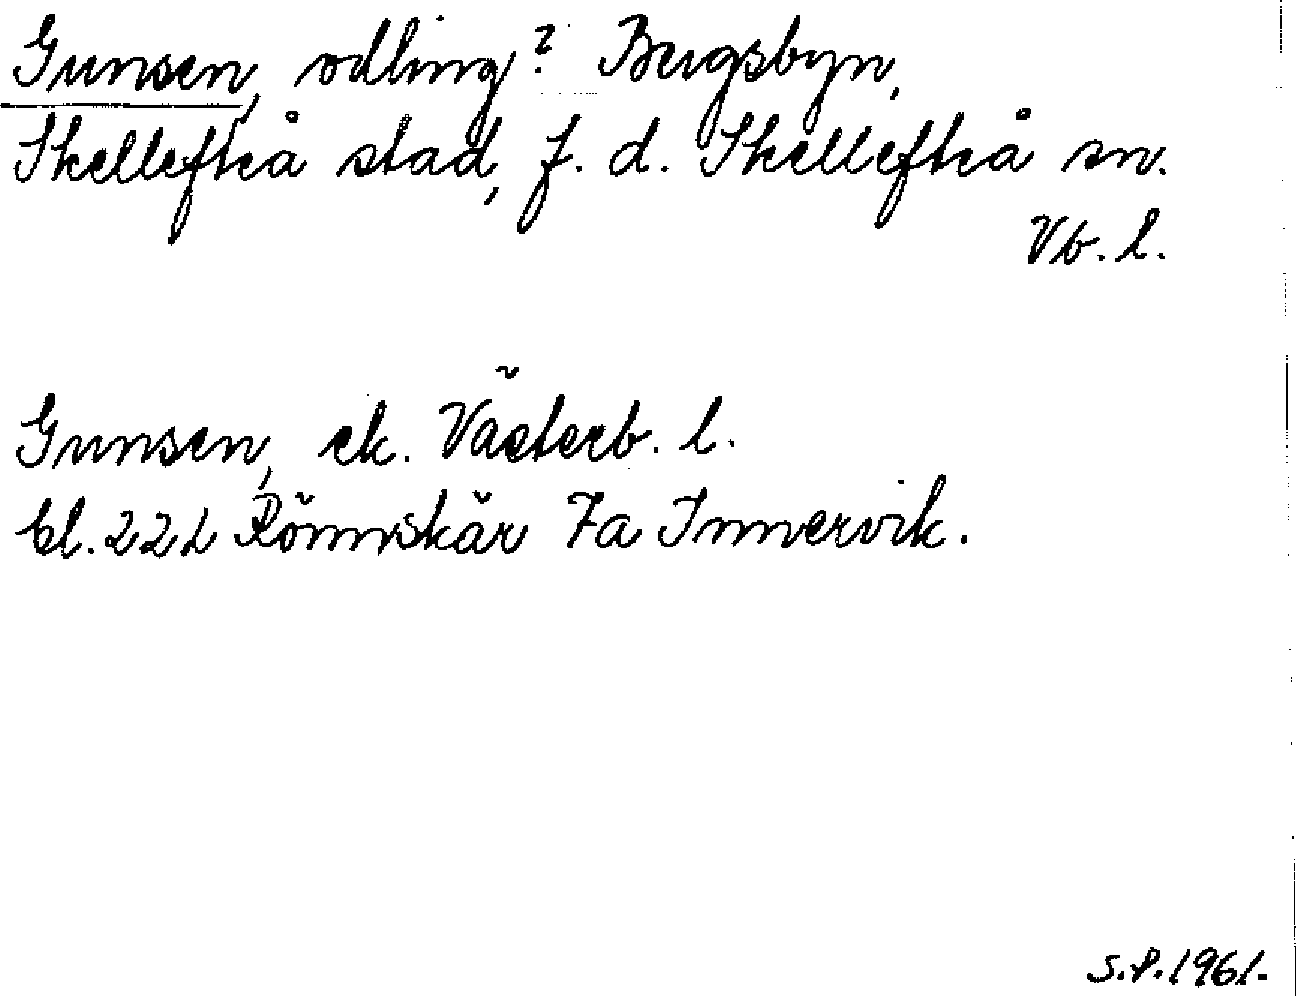 Gunsen, odling? Bergsbyn,
Skellefteå stad, f. d. Skellefteå sn.
Vb. l.
Gunsen, ek. Västerb. l.
bl. 22L Rönnskär 7a Innervik.
S.P. 1961.